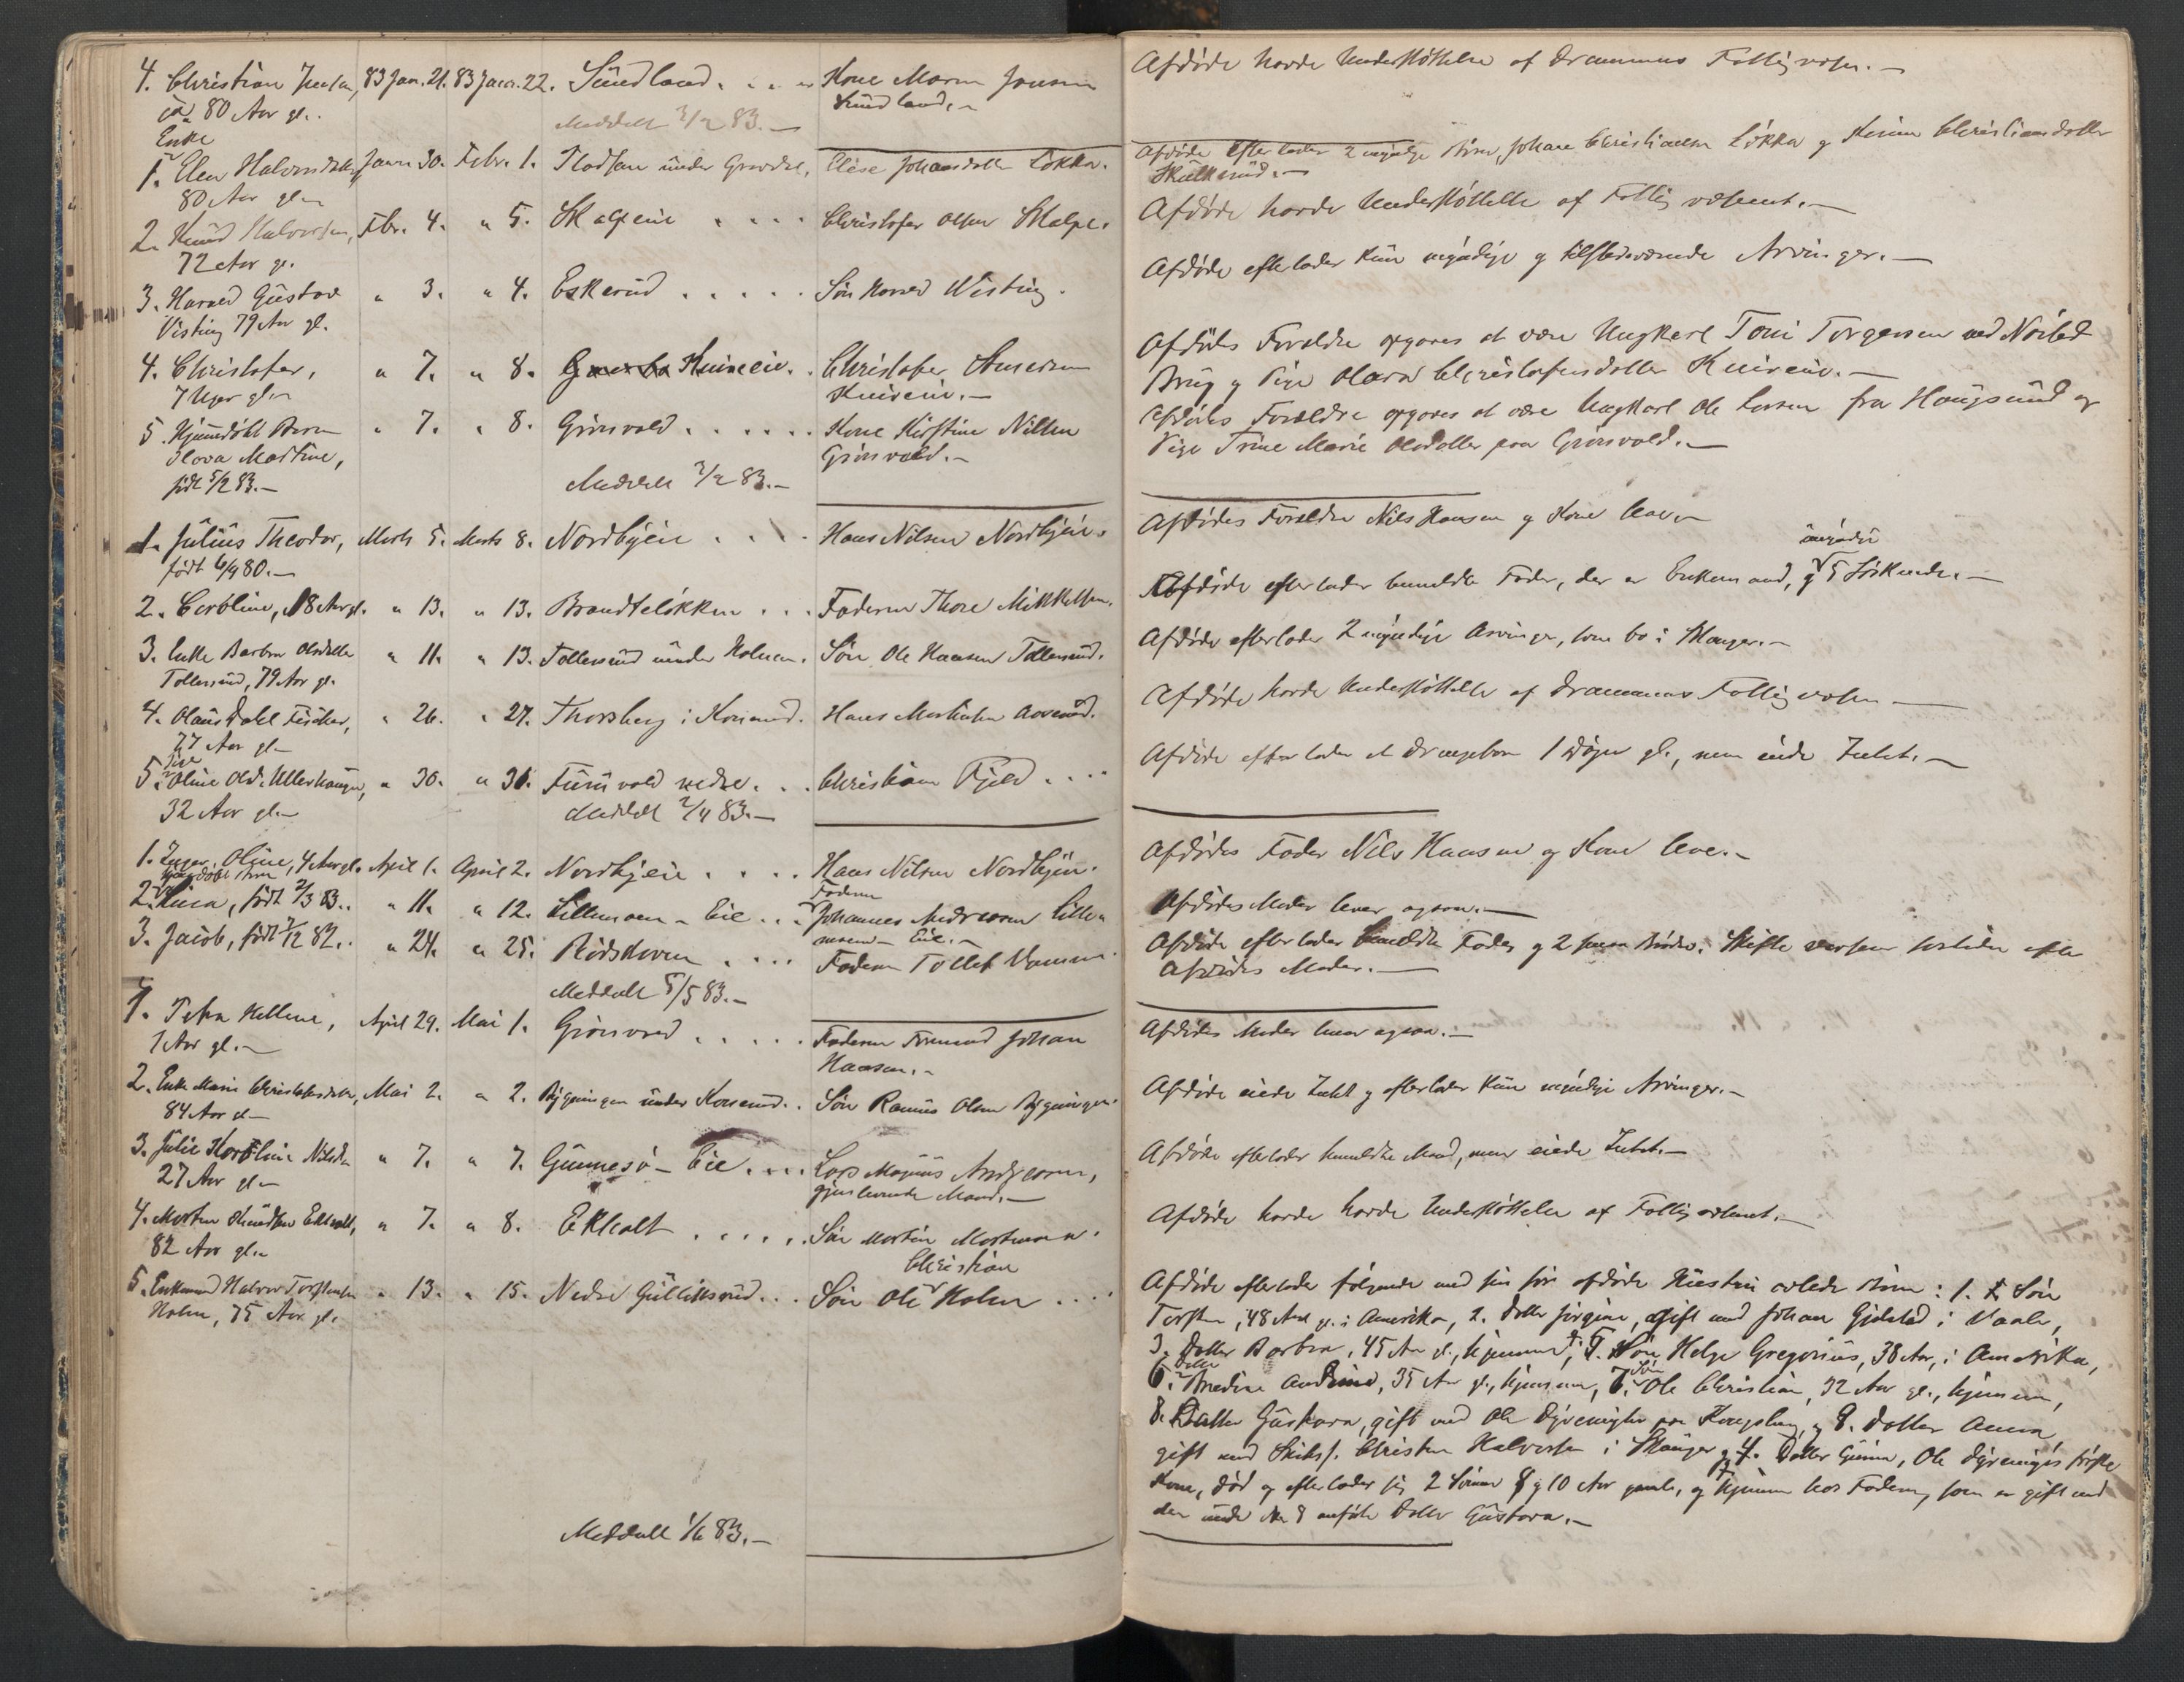 4. Christian Jensen, 83 Jan. 21. 83 Janr. 22. Sundland. . . . Kone Maren Jensen
80 Aar gl. Sundland. -
Meddelt 2/2 83. -
Enke
1. Elen Halvorsdatter, Janr 30. Febr. 1. Flodsan under Grordal, Elise Johansdatter Løkka.
80 Aar gl -
2. Knud Halvorsen, Fbr. 4. " 5. Skalpeie . . . . Christofer Olsen Skalpe.
72 Aar gl.
3. Harald Gustav " 3. " 4. Eskerud . . . . . Søn Harald Wisting.
Visting 79 Aar gl.
4. Christofer, " 7. " 8. Kniveeie. . Christofer Knivene. -
7 Uger gl -
5. Hjemdøbt Barn " 7. " 8. Grinvold. . . . . . Kone Kirstine Nilsen
Olova Martine, Grinsvold. -
født 5/2 83. - Meddelt 3/2 83. -
1. Julius Theodor, Marts 5. Marts 8. Nordbyeie . . . . Hans Nilsen Nordbyeie.
født 6/9 80. -
2. Caroline, 18 Aar gl. " 13. " 13. Brandteløkken . . . Faderen Thore Mikkelsen.
3. Enke Barbra Olsdatter " 11. " 13. Tollersrud under Holmen. Søn Ole Hansen Tollersrud.
Tollersrud, 79 Aar gl.
4. Olaus Dahl Fischer, " 26. " 27. Thorsberg i Konnerud. Hans Aaserud.
77 Aar gl -
Pige
5. Oline Olsd. Ullershaugen, " 30. " 31. Furuvold nedre. . . Christian Fjeld . . . .
32 Aar gl. - Meddelt 2/4 83. -
1. Inger Oline, 4 Aar gl. April 1. April 2. Nordbyeie . . . . Hans Nilsen Nordbyeie.
Hjemdøbt Barn Faderen
2. Lina, født 2/3 83. . " 11. " 12. Lillemoen - Eie . . . Johannes Andresen Lille-
moen - Eie. -
3. Jacob, født 7/12 82. . " 24. " 25. Rødskoven . . . . Faderen Tollef
Meddelt 5/5 83. -
1. Petra Helline, April 29. Mai 1. Grinsvold . . . . . Faderen Formand Johan
1 Aar gl. - Hansen. -
2. Enke Marie Christofersdatter, Mai 2. " 2. Bygningen under Konnerud. . Søn Rasmus Olsen Bygningen.
84 Aar gl -
3. Julie Karoline Nilsdtr " 7. " 7. Gunnesø - Eie . . . . Lars Magnus Andersen,
27 Aar gl - gjenlevende Mand. -
4. Morten Knudsen Ekholt, " 7. " 8. Ekholt . . . . . Søn Martin Mortensen.
82 Aar gl.
Christian
5. Enkemand Halvor Torstensen " 13. " 15. Nedre Gulliksrud. . . Søn Ole Holm . . . .
Holm, 75 Aar gl.
Meddelt 1/6 83. -
Afdøde havde Understøttelse af Drammens Fattigvæsen. -
Afdøde efterlader 2 myndige Børn, Johan Christiansen Løkka og Christiansdatter
Skulkerud. -
Afdøde havde Understøttelse af Fattigvæsenet. -
Afdøde efterlader kun myndige og tilstedeværende Arvinger. -
Afdødes Forældre opgaves at være Ungkarl Toni Torgersen ved Nøsted
Brug og Pige Olava Christofersdatter Kniveeie. -
Afdødes Forældre opgaves at være Ungkarl Ole Larsen fra Haugsund og
Pige Trine Marie Olsdatter paa Grinsvold. -
Afdødes Forældre Nils Hansen og Kone leve. -
umyndige
Afdøde efterlader bemeldte Fader, der er Enkemand, og 5 Søskende. -
Afdøde efterlader 2 myndige Arvinger, som bo i Skouger. -
Afdøde havde Understøttelse af Drammens Fattigvæsen -
Afdøde efterlader et Drengebarn 1 Døgn gl., men eiede Intet. -
Afdødes Fader Nils Hansen og Kone leve. -
Afdødes Moder lever ogsaa. -
Afdøde efterlader bemeldte Fader og 2 Brødre. Skifte forhen efter
Afdødes Moder. -
Afdødes Moder lever ogsaa. -
Afdøde eiede Intet og efterlader kun myndige Arvinger. -
Afdøde efterlader bemeldte Mand, men eiede Intet. -
Afdøde havde havde Understøttelse af Fattigvæsenet. -
Afdøde efterlader følgende med sin før afdøde Hustru avlede Børn: 1. Søn
Torsten, 48 Aar gl. i Amerika, 2. Datter Jørgine, gift med Johan Gjelstad i Vaale,
3. Datter Barbra, 45 Aar gl., hjemme, 5. Søn Helge Gregorius, 38 Aar, i Amerika,
Datter Søn
6. Andrine, 35 Aar gl., hjemme, 7. Ole Christian, 32 Aar gl., hjemme,
8. Datter Gustava, gift med Ole Dyrmyr paa Kongsberg, og 9. Datter Anna,
gift med Christen Halvorsen i Skouger og 4. Datter Gunia, Ole Dyrmyrs første
Kone, død og efterlader sig 2 Sønner 8 og 10 Aar gamle, og hjemme hos Faderen, som er gift med
den under No 8 anførte Datter Gustava. -